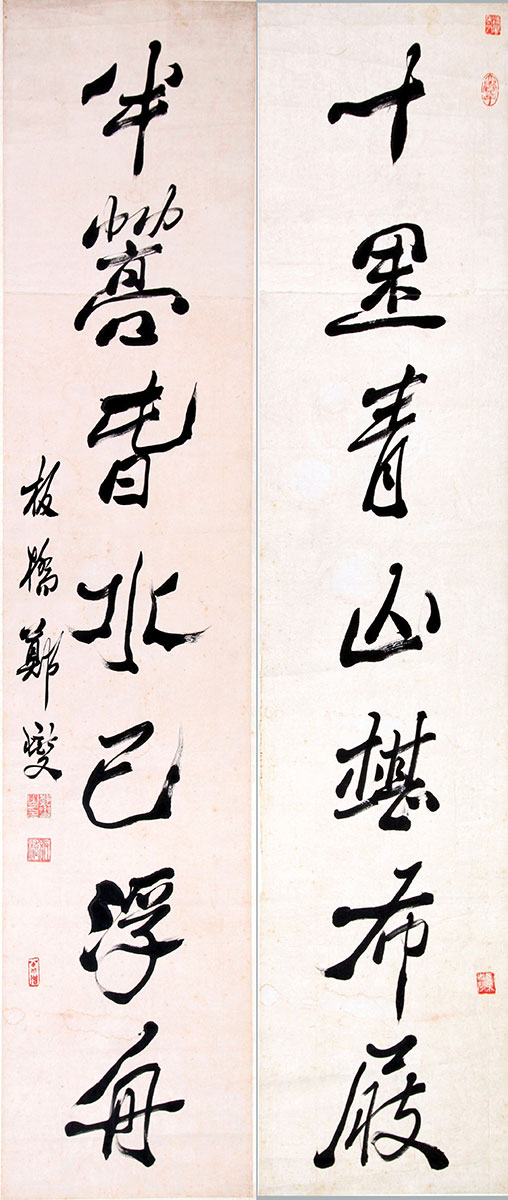 十里青山堪布屐
半篙春水已浮舟
板橋鄭燮